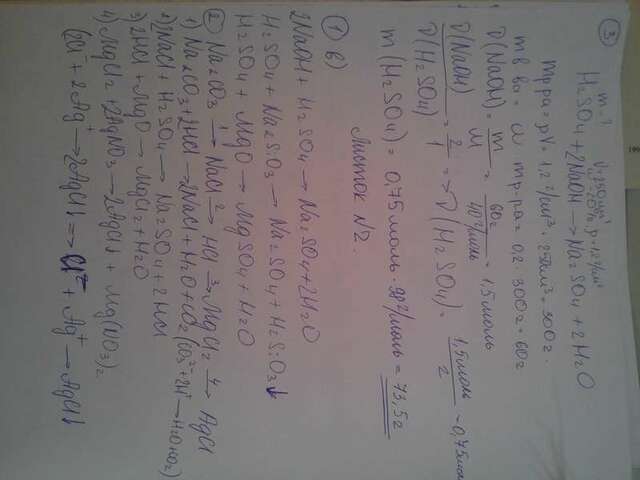 ③ m-?
H₂SO₄ + 2NaOH → Na₂SO₄ + 2H₂O
m р-ра = ρV = 1,2 г/см³ · 250 см³ = 300 г.
m в-ва = ω · m р-ра = 0,2 · 300 г = 60 г
ν(NaOH) = m/M = 60г/40 г/моль = 1,5 моль
ν(NaOH)/ν(H₂SO₄) = 2/1 => ν(H₂SO₄) = 1,5 моль/2 = 0,75 моль
m(H₂SO₄) = 0,75 моль · 98 г/моль = 73,5 г
Листок N2.
① в)
2NaOH + H₂SO₄ → Na₂SO₄ + 2H₂O
H₂SO₄ + Na₂SiO₃ → Na₂SO₄ + H₂SiO₃↓
H₂SO₄ + MgO → MgSO₄ + H₂O
② Na₂CO₃ 1→ NaCl 2→ HCl 3→ MgCl₂ 4→ AgCl
1) Na₂CO₃ + 2HCl → 2NaCl + H₂O + CO₂ (CO₃²⁻ + 2H⁺ → H₂O + CO₂)
2) 2NaCl + H₂SO₄ → Na₂SO₄ + 2HCl
3) 2HCl + MgO → MgCl₂ + H₂O
4) MgCl₂ + 2AgNO₃ → 2AgCl↓ + Mg(NO₃)₂
2Cl⁻ + 2Ag⁺ → 2AgCl↓ => Cl⁻ + Ag⁺ → AgCl↓